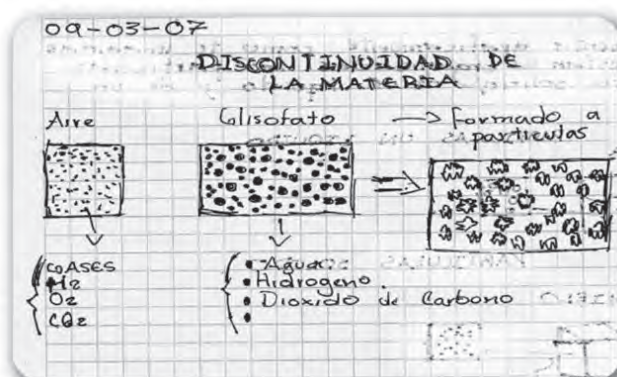 09-03-07
DISCONTINUIDAD DE
LA MATERIA
Aire
Glisofato → Formado a
particulas
GASES
H2
O2
CO2
• Agua
• Hidrogeno.
• Dioxido de Carbono
•